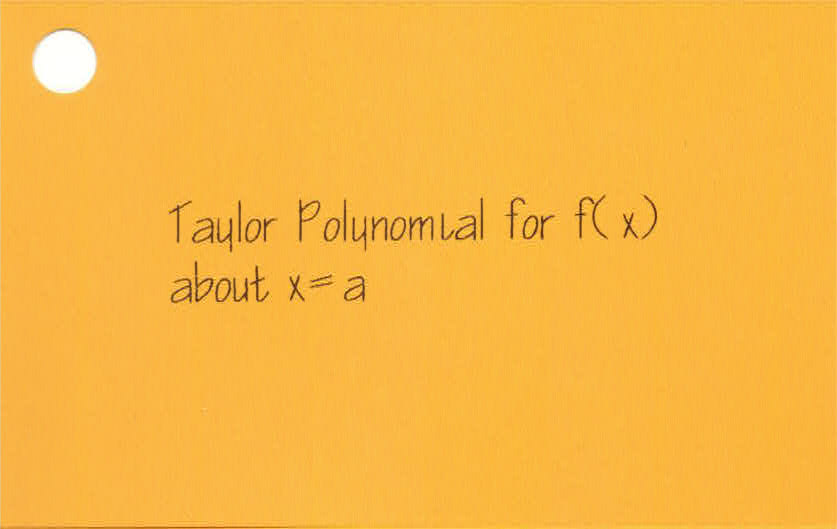 Taylor Polynomial for f(x)
about x = a